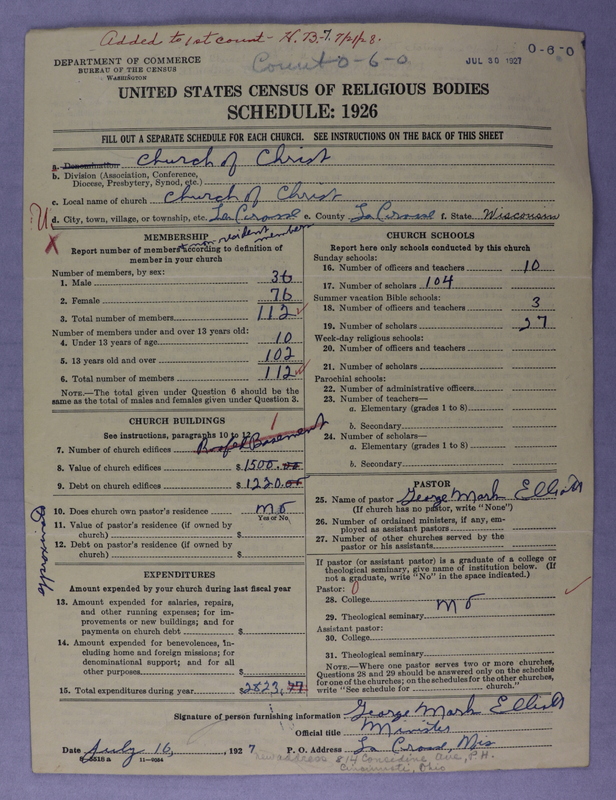 Added to 1st count - H. B. 7/21/28.
DEPARTMENT OF COMMERCE
BUREAU OF THE CENSUS
WASHINGTON
Count 0-6-0
JUL 30 1927
0-6-0
UNITED STATES CENSUS OF RELIGIOUS BODIES
SCHEDULE: 1926
FILL OUT A SEPARATE SCHEDULE FOR EACH CHURCH. SEE INSTRUCTIONS ON THE BACK OF THIS SHEET
a. Denomination Church of Christ
b. Division (Association, Conference,
Diocese, Presbytery, Synod, etc.)
c. Local name of church Church of Christ
U d. City, town, village, or township, etc. La Crosse e. County La Crosse f. State Wisconsin
X MEMBERSHIP
non resident members
Report number of members according to definition of
member in your church
Number of members, by sex:
1. Male 36
2. Female 76
3. Total number of members 112
Number of members under and over 13 years old:
4. Under 13 years of age 10
5. 13 years old and over 102
6. Total number of members 112
NOTE.—The total given under Question 6 should be the
same as the total of males and females given under Question 3.
CHURCH BUILDINGS
See instructions, paragraphs 10 to 12
7. Number of church edifices Roofed Basement 1
8. Value of church edifices $1500.00
9. Debt on church edifices $1220.00
10. Does church own pastor's residence? No
Yes or No
11. Value of pastor's residence (if owned by
church) $
12. Debt on pastor's residence (if owned by
church) $
approximate
EXPENDITURES
Amount expended by your church during last fiscal year
13. Amount expended for salaries, repairs,
and other running expenses; for im-
provements or new buildings; and for
payments on church debt $
14. Amount expended for benevolences, in-
cluding home and foreign missions; for
denominational support; and for all
other purposes $
15. Total expenditures during year $2823.47
CHURCH SCHOOLS
Report here only schools conducted by this church
Sunday schools:
16. Number of officers and teachers 10
17. Number of scholars 104
Summer vacation Bible schools:
18. Number of officers and teachers 3
19. Number of scholars 27
Week-day religious schools:
20. Number of officers and teachers
21. Number of scholars
Parochial schools:
22. Number of administrative officers
23. Number of teachers—
a. Elementary (grades 1 to 8)
b. Secondary
24. Number of scholars—
a. Elementary (grades 1 to 8)
b. Secondary
PASTOR
25. Name of pastor George Mark Elliott
(If church has no pastor, write "None")
26. Number of ordained ministers, if any, em-
ployed as assistant pastors
27. Number of other churches served by the
pastor or his assistants
If pastor (or assistant pastor) is a graduate of a college or
theological seminary, give name of institution below. (If
not a graduate, write "No" in the space indicated.)
Pastor: 0
28. College No
29. Theological seminary
Assistant pastor:
30. College
31. Theological seminary
NOTE.—Where one pastor serves two or more churches,
Questions 28 and 29 should be answered only on the schedule
for one of the churches; on the schedules for the other churches,
write "See schedule for church."
Signature of person furnishing information George Mark Elliott
Official title Minister
Date July 16, 1927 P. O. Address La Crosse, Wis
8-5518 a 11-9054
new address 814 Considine Ave, P.H.
Cincinnati, Ohio